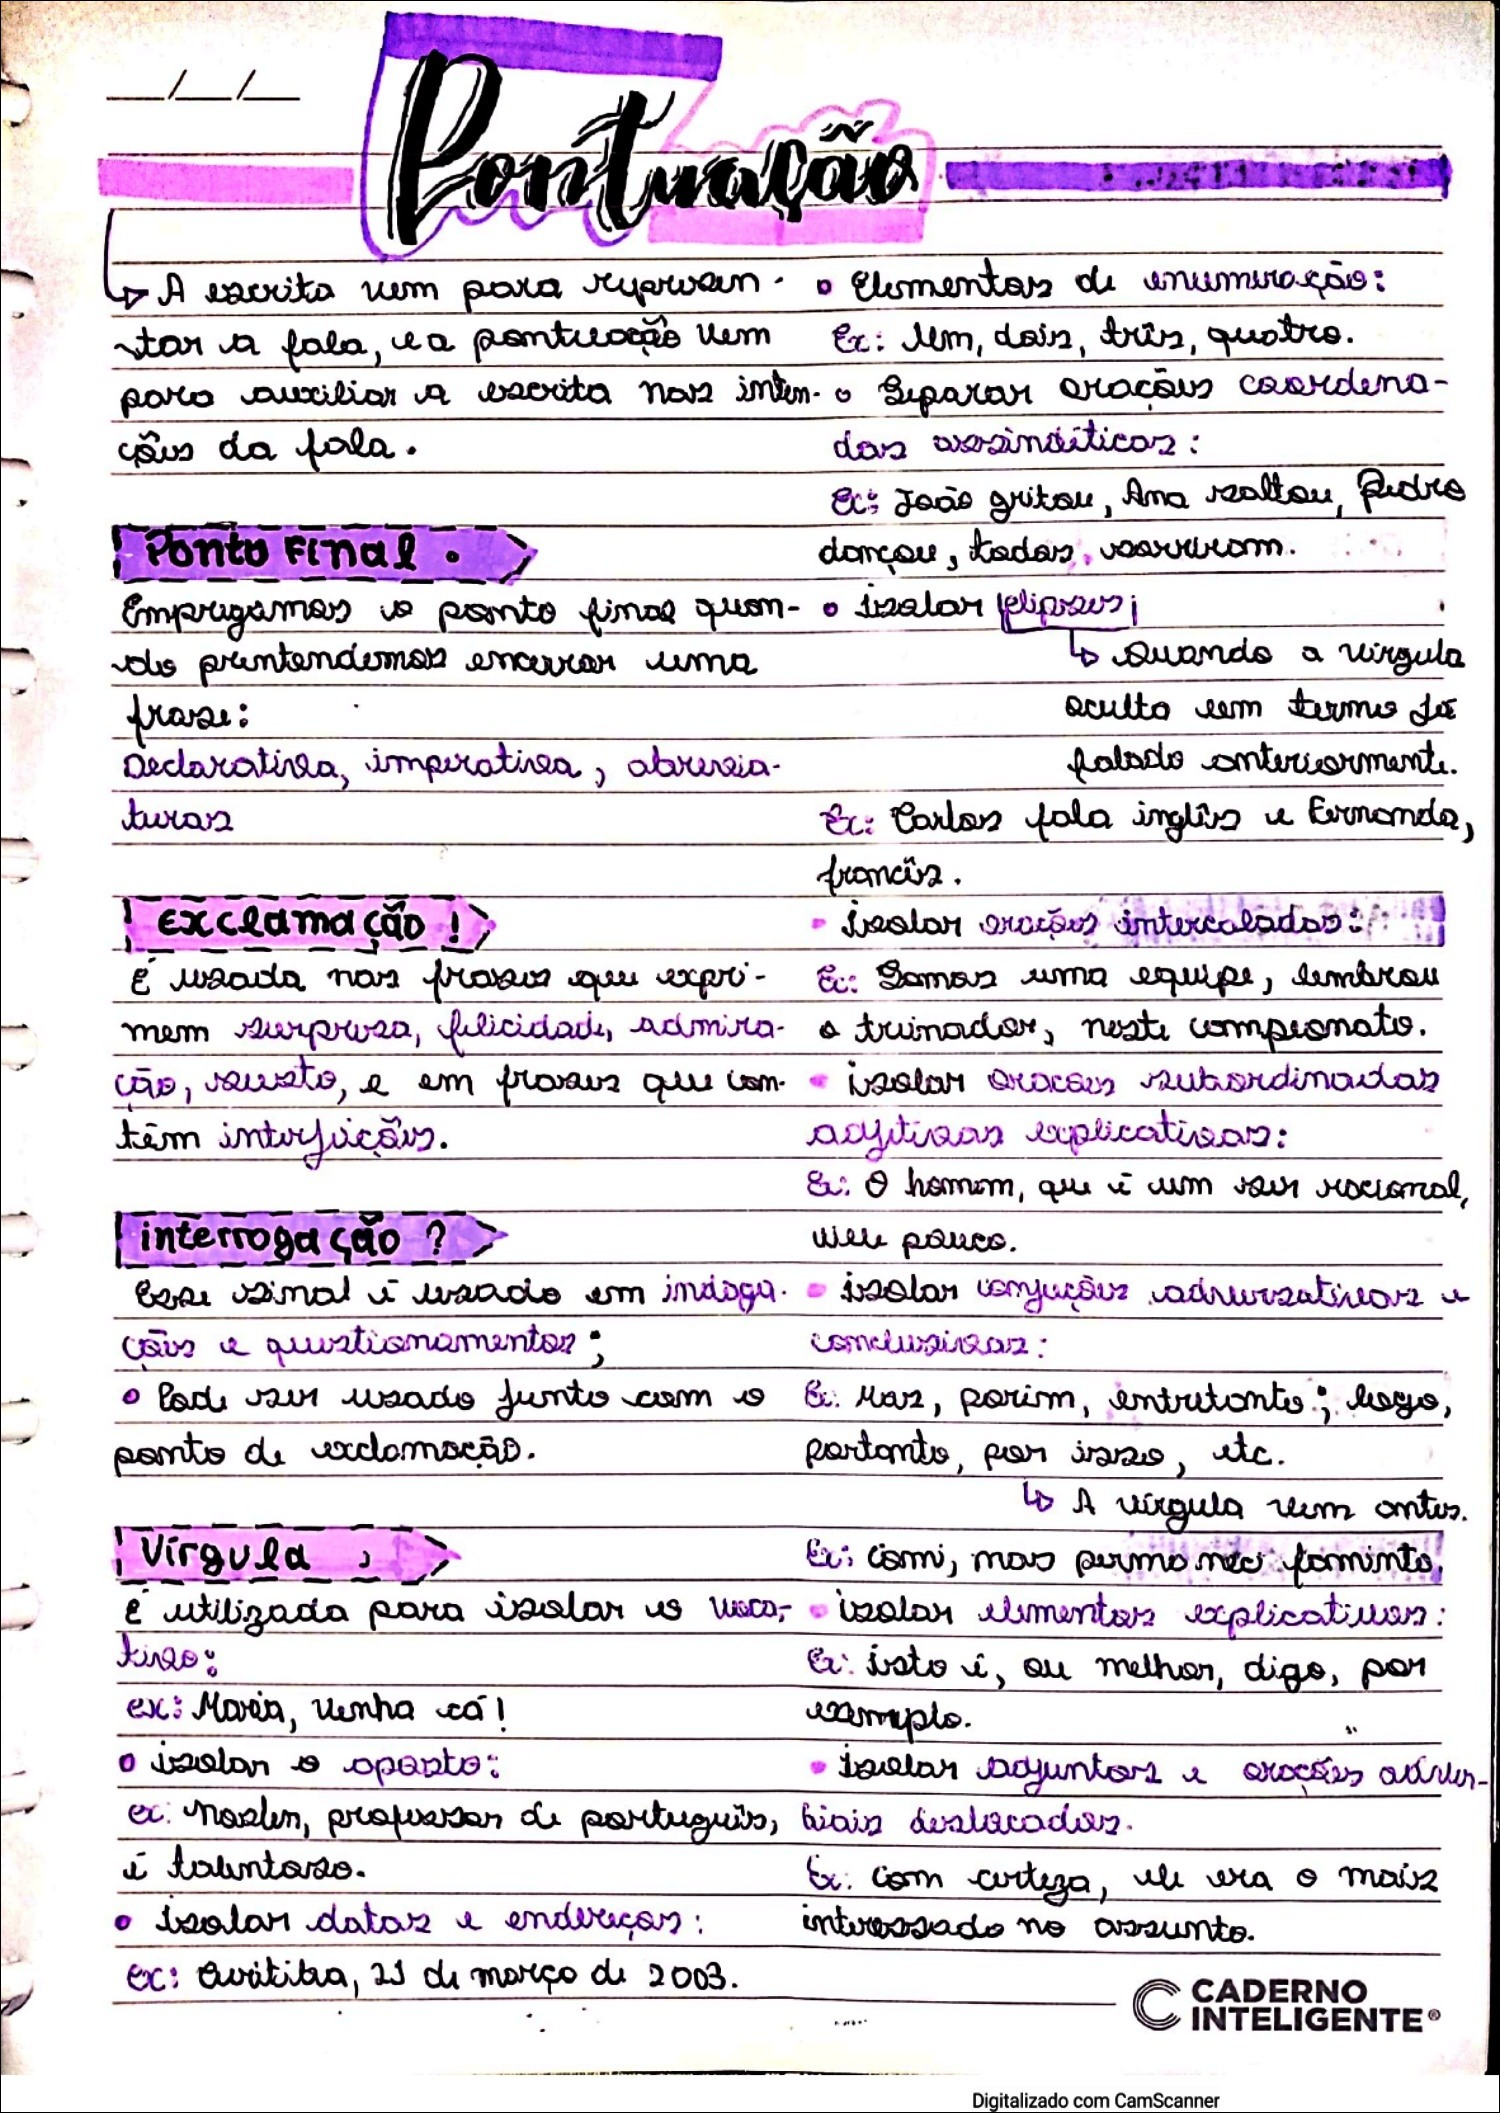 __/__/__
Pontuação
A escrita vem para represen-
tar a fala, e a pontuação vem
para auxiliar a escrita nas inten-
ções da fala.
Ponto Final .
Empregamos o ponto final quan-
do prentendemos encerrar uma
frase:
Declarativa, imperativa, abrevia-
turas
Exclamação !
É usada nas frases que expri-
mem surpresa, felicidade, admira-
ção, susto, e em frases que con-
têm interjeições.
interrogação ?
Esse sinal é usado em indaga-
ções e questionamentos;
• Pode ser usado junto com o
ponto de exclamação.
Vírgula ,
É utilizada para isolar o voca-
tivo:
ex: Maria, venha cá!
• isolar o aposto:
ex: Noslen, professor de português,
é talentoso.
• isolar datas e endereços:
ex: Curitiba, 21 de março de 2003.
• Elementos de enumeração:
Ex: Um, dois, três, quatro.
• Separar orações coordena-
das assindéticas:
Ex: João gritou, Ana saltou, Pedro
dançou, todos sorriram.
• isolar elipses;
Quando a vírgula
oculta um termo já
falado anteriormente.
Ex: Carlos fala inglês e Fernanda,
francês.
• isolar orações intercaladas:
Ex: Somos uma equipe, lembrou
o treinador, neste campeonato.
• isolar oracões subordinadas
adjtivas explicativas:
Ex: O homem, que é um ser racional,
vive pouco.
• isolar conjuções adversativas e
conclusivas:
Ex: Mas, porém, entretanto; logo,
portanto, por isso, etc.
A vírgula vem antes.
Ex: comi, mas permaneci faminto.
• isolar elementos explicativos:
Ex: isto é, ou melhor, digo, por
exemplo.
• isolar adjuntos e orações adver-
biais deslocados.
Ex: com certeza, ele era o mais
interessado no assunto.
CADERNO
INTELIGENTE®
Digitalizado com CamScanner